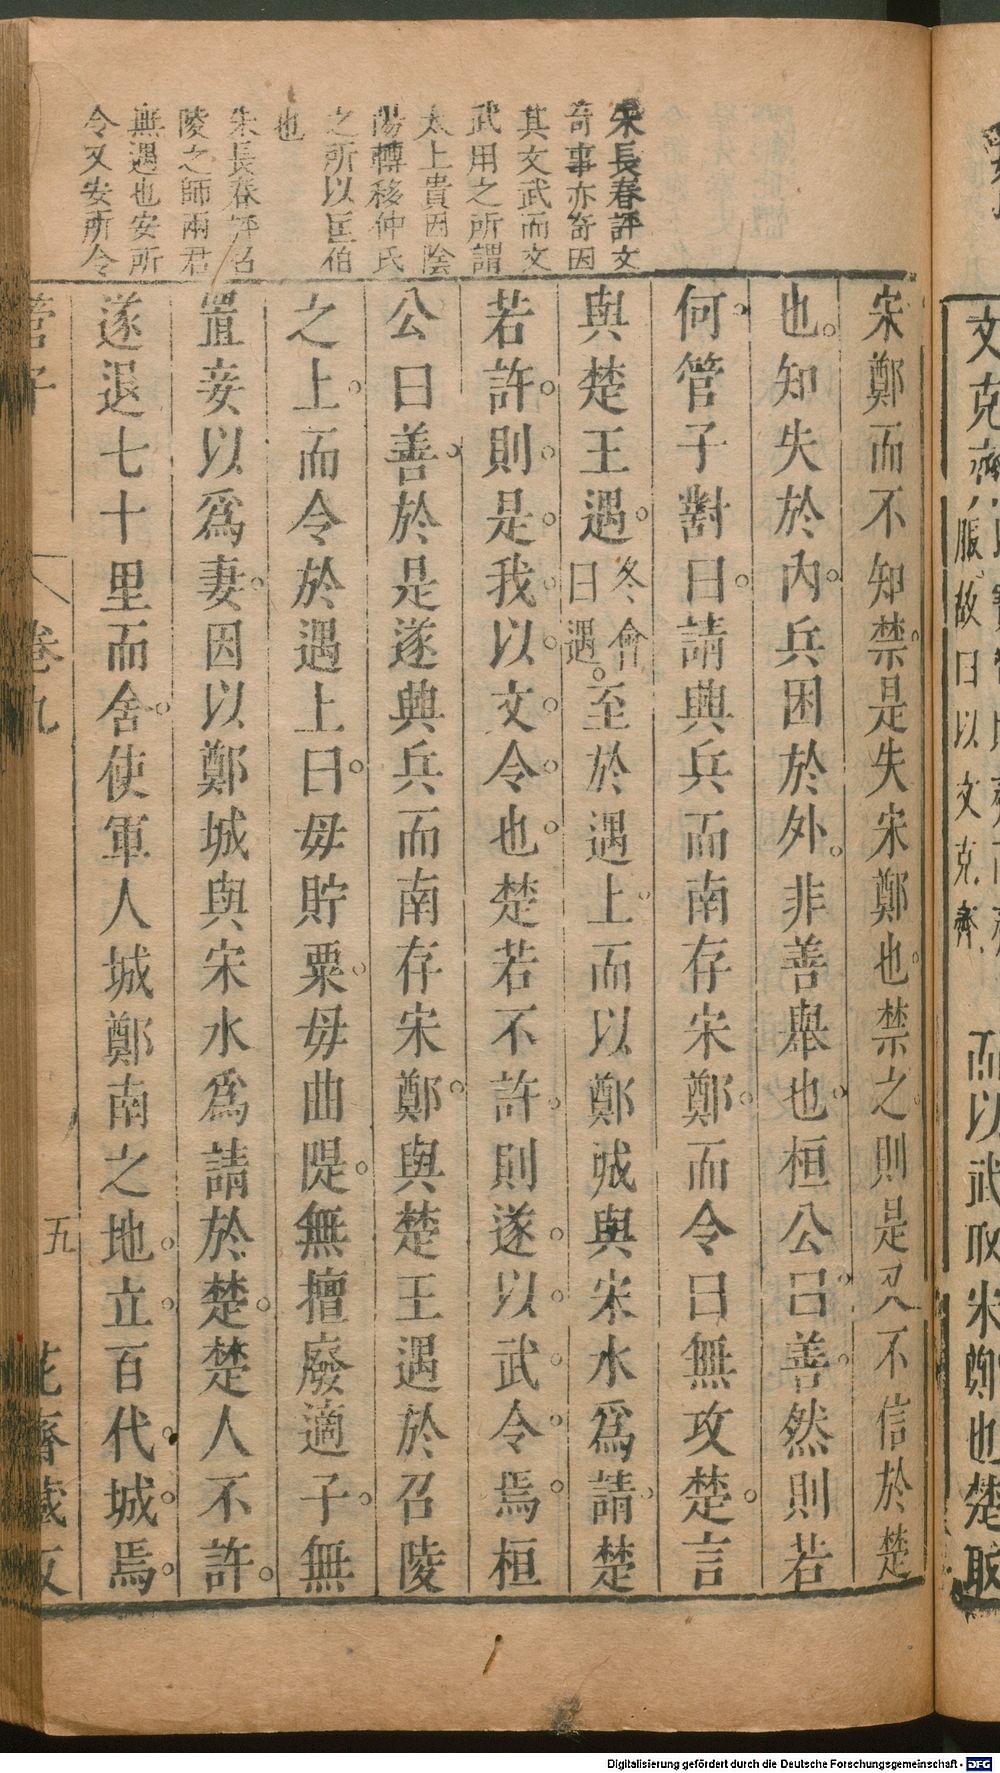 朱長春評文
奇事亦奇因
其文武而文
武用之所謂
太上貴因陰
陽轉移仲氏
之所以匡伯
也
朱長春評召
陵之師兩君
無遇也安所
令又安所令
宋鄭而不知禁是失宋鄭也禁之則是又不信於楚
也知失於內兵困於外非善舉也桓公曰善然則若
何管子對曰請興兵而南存宋鄭而令曰無攻楚言
與楚王遇冬會曰遇至於遇上而以鄭城與宋水爲請楚
若許則是我以文令也楚若不許則遂以武令焉桓
公曰善於是遂興兵而南存宋鄭與楚王遇於召陵
之上而令於遇上曰毋貯粟毋曲隄無擅廢適子無
置妾以爲妻因以鄭城與宋水爲請於楚楚人不許
遂退七十里而舍使軍人城鄭南之地立百代城焉
管子 卷九 五 花齋藏板
服故曰以文克齊
而以武取宋鄭也楚取
Digitalisierung gefördert durch die Deutsche Forschungsgemeinschaft - DFG